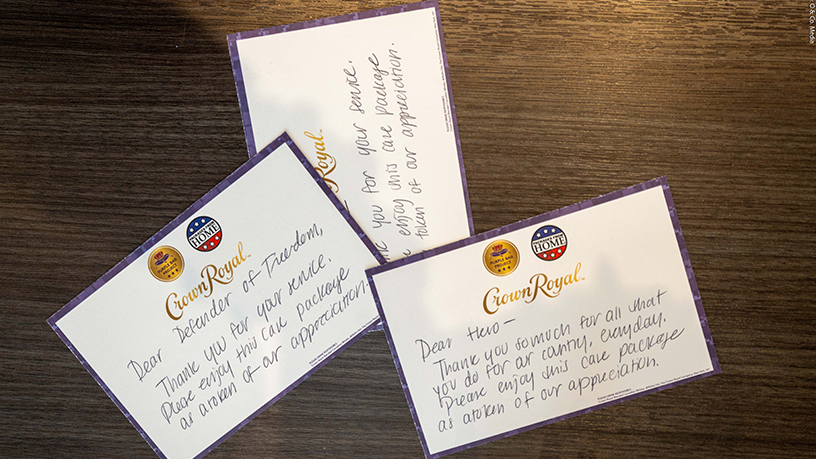 Royal
you for your service.
enjoy this care package
token of our appreciation.
PURPLE BAG
PROJECT
HOME
Crown Royal
Dear Defender of Freedom,
Thank you for your service.
Please enjoy this care package
as a token of our appreciation.
PURPLE BAG
PROJECT
HOME
Crown Royal
Dear Hero—
Thank you so much for all that
you do for our contry, everyday.
Please enjoy this care package
as a token of our appreciation.
O & Co. Media